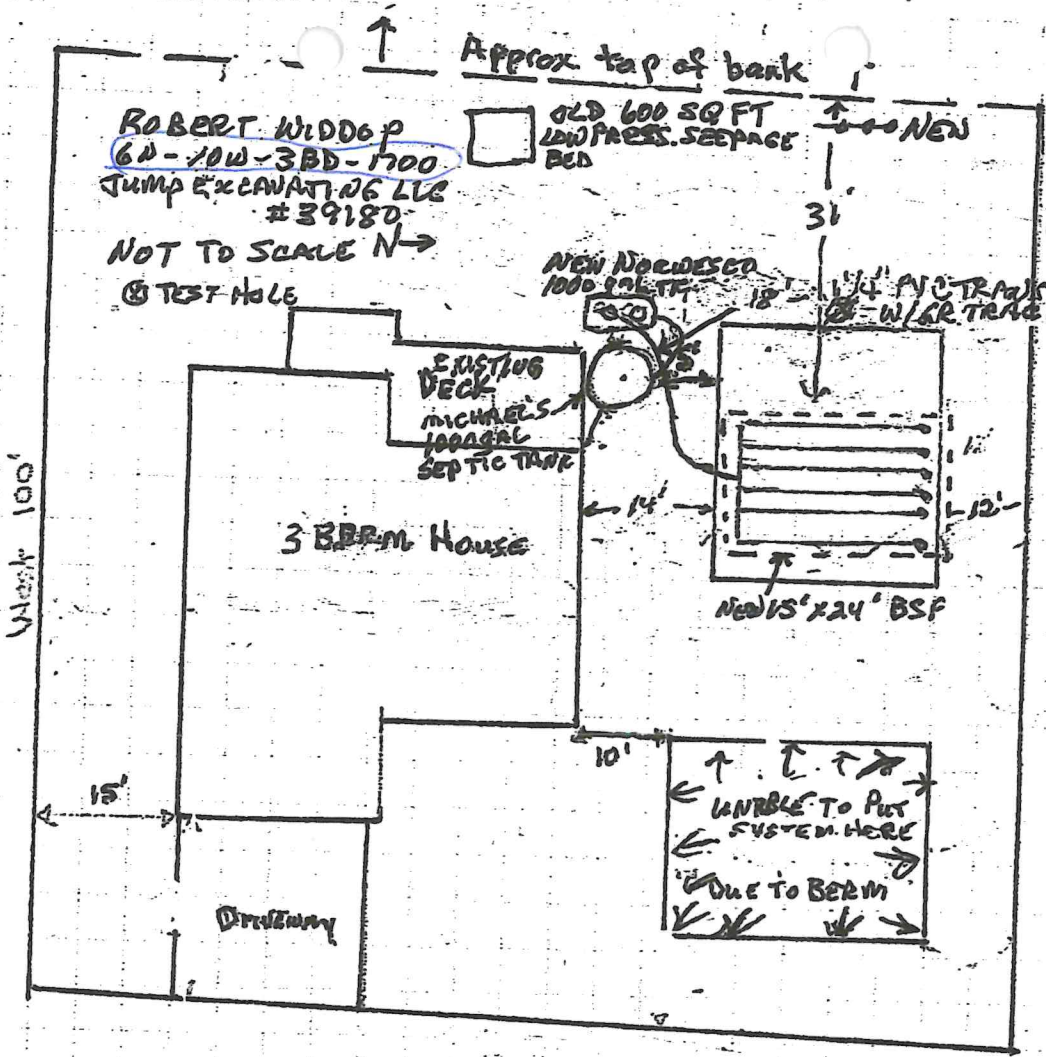 Approx top of bank
ROBERT WIDDOP
6N-10W-3BD-1700
JUMP EXCAVATING LLC
#39180
NOT TO SCALE N→
⊗ TEST HOLE
OLD 600 SQ FT
LOW PRESS. SEEPAGE
BED
NEW
31'
NEW NORWESCO
1000 GAL
18'
1¼" PVC TRANS
W/GR. TRAC
EXISTING
DECK
MICHAEL'S
1000GAL
SEPTIC TANK
14'
12'
NEW 15' X 24' BSF
3 BDRM HOUSE
100'
10'
15'
UNABLE TO PUT
SYSTEM HERE
DUE TO BERM
DRIVEWAY